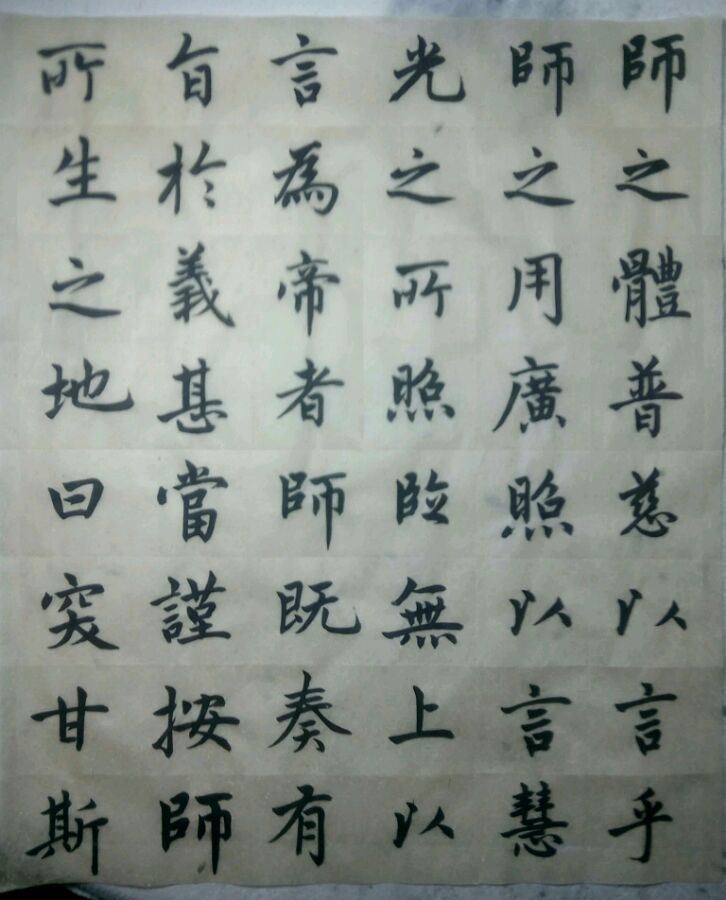 師之體普慈以言乎
師之用廣照以言慧
光之所照臨無上以
言為帝者師既奏有
旨於義甚當謹按師
所生之地曰突甘斯